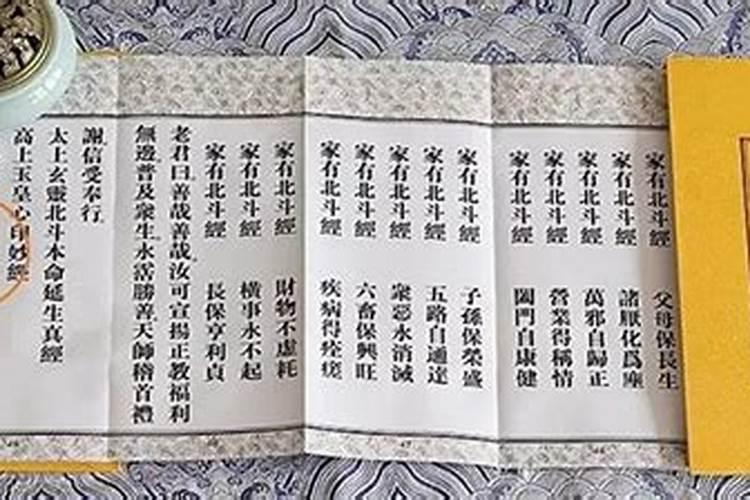 家有北斗經 父母保長生
家有北斗經 諸厭化爲塵
家有北斗經 萬邪自歸正
家有北斗經 營業得稱情
家有北斗經 闔門自康健
家有北斗經 子孫保榮盛
家有北斗經 五路自通達
家有北斗經 衆惡永消滅
家有北斗經 六畜保興旺
家有北斗經 疾病得痊瘥
家有北斗經 財物不虛耗
家有北斗經 橫事永不起
家有北斗經 長保亨利貞
老君曰善哉善哉汝可宣揚正教福利
無邊普及衆生永活勝善天師稽首禮
謝信受奉行
太上玄靈北斗本命延生真經
高上玉皇心印妙經